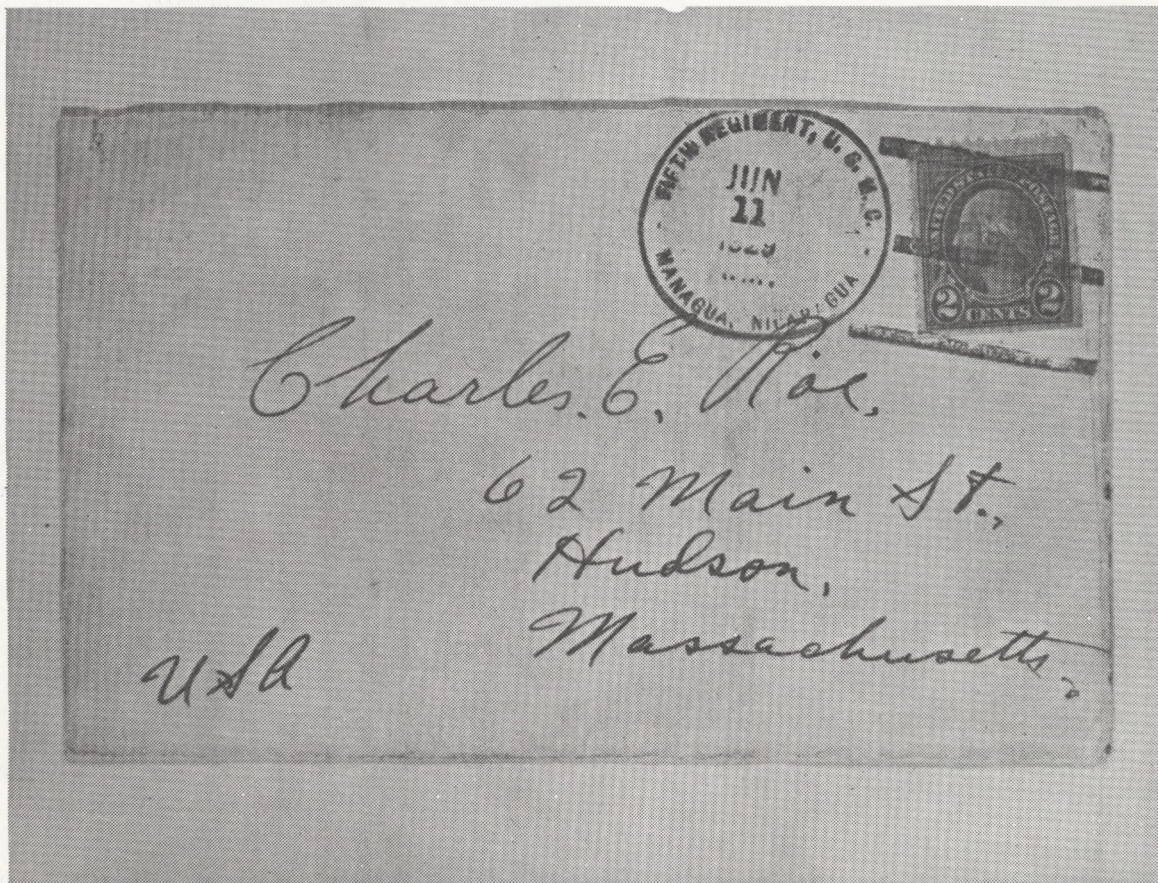 FIFTH REGIMENT, U. S. M. C.
JUN
11
1929
MANAGUA, NICARAGUA
UNITED STATES POSTAGE
2 CENTS 2
Charles. E. Roe,
62 Main St.,
Hudson,
Massachusetts,
USA